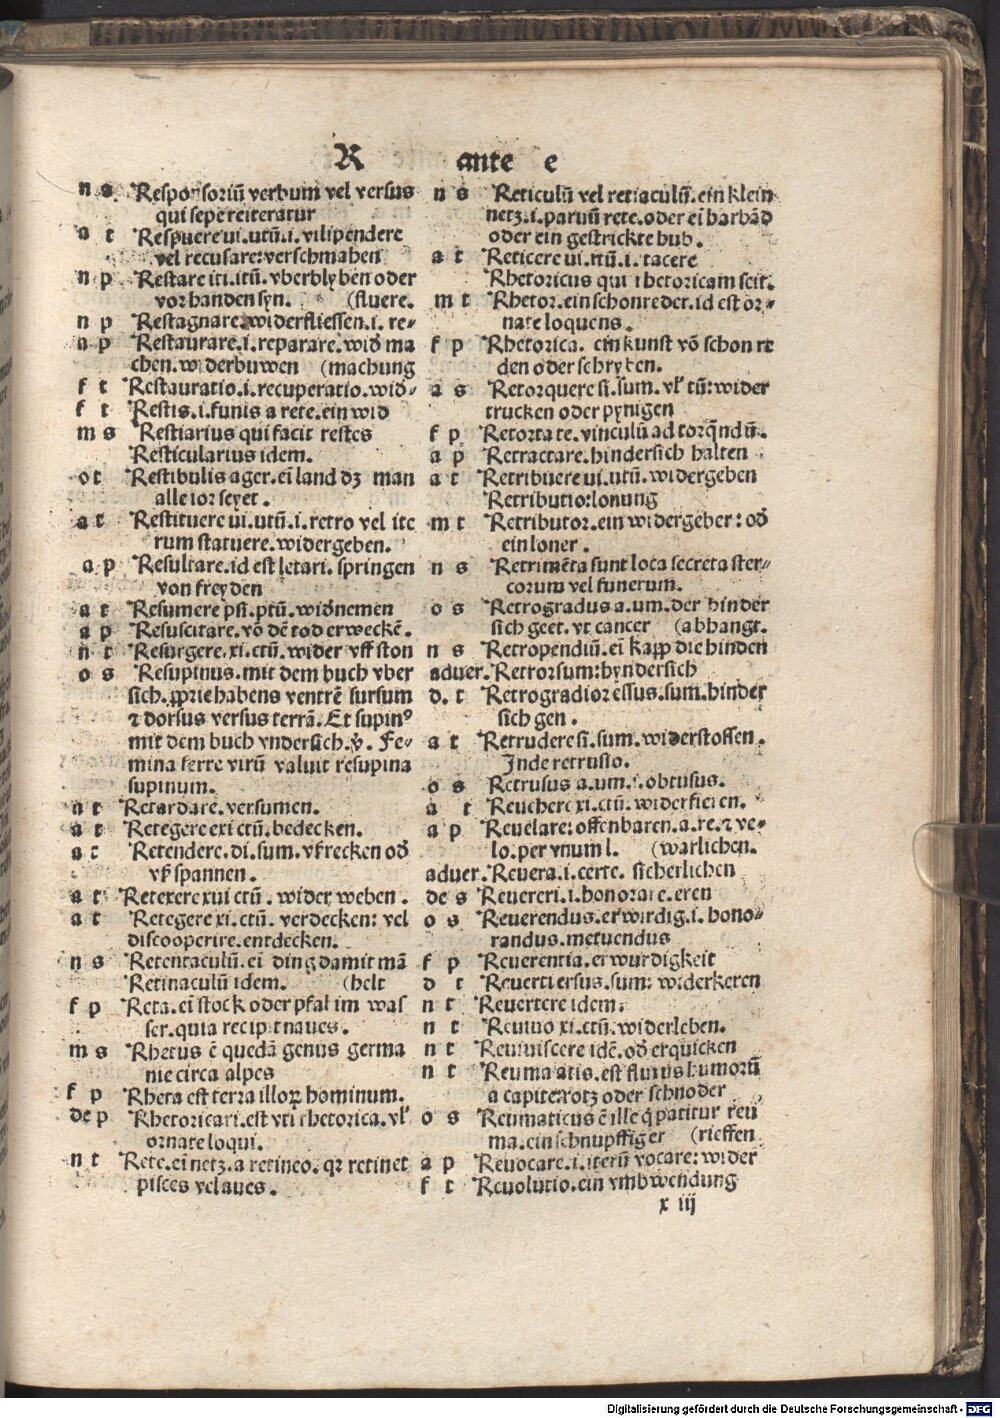 R ante e
n s Responsoriū verbum vel versus
qui sepe reiteratur
a t Respuere ui. utū. i. vilipendere
vel recusare: verschmahen
n p Restare iti. itū. vberblyben oder
vorhanden syn. (fluere.
n p Restagnare. widerfliessen. i. re-
a p Restaurare. i. reparare. wid̄ ma
chen. widerbuwen (machung
f t Restauratio. i. recuperatio. wid̄-
f t Restis. i. funis a rete. ein wid
m s Restiarius qui facit restes
Resticularius idem.
o t Restibulis ager. eī land dz man
alle ior seyet.
a t Restituere ui. utū. i. retro vel ite
rum statuere. widergeben.
a p Resultare. id est letari. springen
von freyden
a t Resumere psi. ptū. wid̄nemen
a p Resuscitare. vō dē tod erweckē.
n t Resurgere. xi. ctū. wider vff ston
o s Resupinus. mit dem buch vber
sich. ꝓprie habens ventrē sursum
⁊ dorsus versus terrā. Et supinꝰ
mit dem buch vndersich. v̊. Fe-
mina ferre virū valuit resupina
supinum.
a t Retardare. versumen.
a t Retegere exi ctū. bedecken.
a t Retendere. di. sum. vr̄recken od̄
vr̄ spannen.
a t Retexere xui ctū. wider weben.
a t Retegere xi. ctū. verdecken: vel
discooperire. entdecken.
n s Retentaculū. eī ding damit mā
Retinaculū idem. (helt
f p Reta. eī stock oder pfal im was
ser. quia recipit naues.
m s Rhetus ē quedā genus germa
nie circa alpes
f p Rheta est terra illoꝝ hominum.
de p Rhetoricari. est vti rhetorica. vl̄
ornate loqui.
n t Rete. eī netz. a retineo. qꝛ retinet
pisces vel aues.
n s Reticulū vel retiaculū. ein klein
netz. i. paruū rete. oder eī harbād
oder ein gestrickte hub.
a t Reticere ui. itū. i. tacere
Rhetoricus qui rhetoricam scit.
m t Rhetor. ein schonreder. id est or-
nate loquens.
f p Rhetorica. ein kunst vō schon re
den oder schryben.
a s Retorquere si. sum. vl̄ tū: wider
trucken oder pynigen
f p Retorta te. vinculū ad torq̄ndū.
a p Retractare. hindersich halten
a t Retribuere ui. utū. widergeben
Retributio: lonung
m t Retributor. ein widergeber: od̄
ein loner.
n s Retrimēta sunt loca secreta ster-
corum vel funerum.
o s Retrogradus a. um. der hinder
sich geet. vt cancer (abhangt.
n s Retropendiū. eī kapp die hinden
aduer. Retrorsum: hyndersich
d. t Retrogradior essus. sum. hinder
sich gen.
a t Retrudere si. sum. widerstossen.
Inde retrusio.
o s Retrusus a. um. i. obtusus.
a t Reuehere xi. ctū. widerfieren.
a p Reuelare: offenbaren. a. re. ⁊ ve-
lo. per vnum l. (warlichen.
aduer. Reuera. i. certe. sicherlichen
de s Reuereri. i. honorare. eren
o s Reuerendus. erwirdig. i. hono-
randus. metuendus
f p Reuerentia. erwurdigkeit
d t Reuerti ersus. sum: widerkeren
n t Reuertere idem.
n t Reuiuo xi. ctū. widerleben.
n t Reuiuiscere idē. od̄ erquicken
n t Reuma atis. est fluxus humorū
a capite. rotz oder schnoder
o s Reumaticus ē ille q̇ patitur reu
ma. ein schnupffiger (rieffen
a p Reuocare. i. iterū vocare: wider
f t Reuolutio. ein vmbwendung
x iij
Digitalisierung gefördert durch die Deutsche Forschungsgemeinschaft - DFG